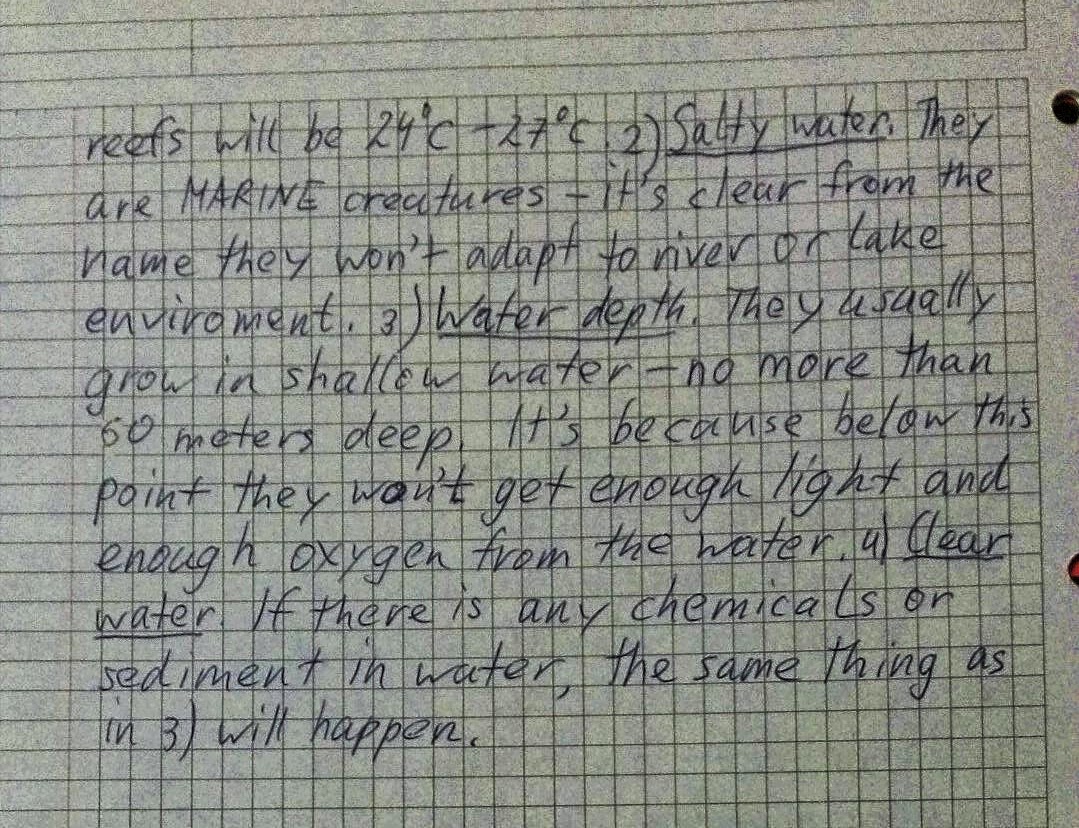 reefs will be 24°C - 27°C. 2) Salty water. They
are MARINE creatures - it's clear from the
name they won't adapt to river or lake
enviroment. 3) Water depth. They usually
grow in shallow water - no more than
60 meters deep. It's because below this
point they won't get enough light and
enough oxygen from the water. 4) Clear
water. If there is any chemicals or
sediment in water, the same thing as
in 3) will happen.